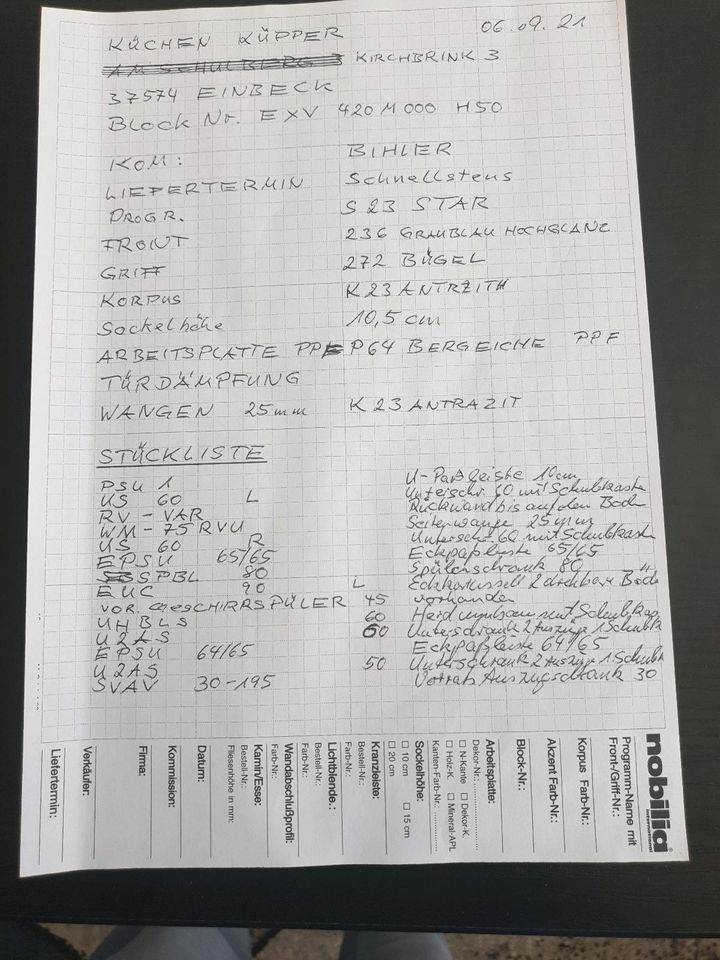 KÜCHEN KÜPPER 06.09.21
AM SCHULBERG 3 KIRCHBRINK 3
37574 EINBECK
BLOCK Nr. EXV 420 M 000 H50
KOM: BIHLER
LIEFERTERMIN Schnellstens
PROGR. S 23 STAR
FRONT 236 GRAUBLAU HOCHGLANZ
GRIFF 272 BÜGEL
KORPUS K23 ANTRZITH
Sockelhöhe 10,5 cm
ARBEITSPLATTE PP P64 BERGEICHE PPF
TÜRDÄMPFUNG
WANGEN 25mm K 23 ANTRAZIT
STÜCKLISTE
PSU 1 U-Paßleiste 10cm
US 60 L Unterschr. 60 mit Schubkaste
RV-VAR Rückwand bis auf den Bod
WM-75 RVU Seitenwange 25mm
US 60 R Unterschr 60 mit Schubkast
EPSU 65/65 Eckpaßleiste 65/65
SPBL 80 Spülenschrank 80
EUC 90 L Eckkarussell 2 drehbare Böd
VOR. GESCHIRRSPÜLER 45 vorhanden
UHBLS 60 Herdumbau mit Schubkas
U2AS 60 Unterschrank 2 Auszüge 1 Schubk
EPSU 64/65 Eckpaßleiste 64/65
U2AS 50 Unterschrank 2 Auszüge 1 Schubk
SVAV 30-195 Vorrats Auszugschrank 30
nobilia
international
Programm-Name mit
Front-/Griff-Nr.:
Korpus Farb-Nr.:
Akzent Farb-Nr.:
Block-Nr.:
Arbeitsplatte:
Dekor-Nr.:
☐ N-Kante ☐ Dekor-K.
☐ Holz-K. ☐ Mineral-APL
Kanten-Farb-Nr.:
Sockelhöhe:
☐ 10 cm ☐ 15 cm
☐ 20 cm
Kranzleiste:
Bestell-Nr.:
Farb-Nr.:
Lichtblende.:
Bestell-Nr.:
Farb-Nr.:
Wandabschlußprofil:
Farb-Nr.:
Kamin/Esse:
Bestell-Nr.:
Fliesenhöhe in mm:
Datum:
Kommission:
Firma:
Verkäufer:
Liefertermin: